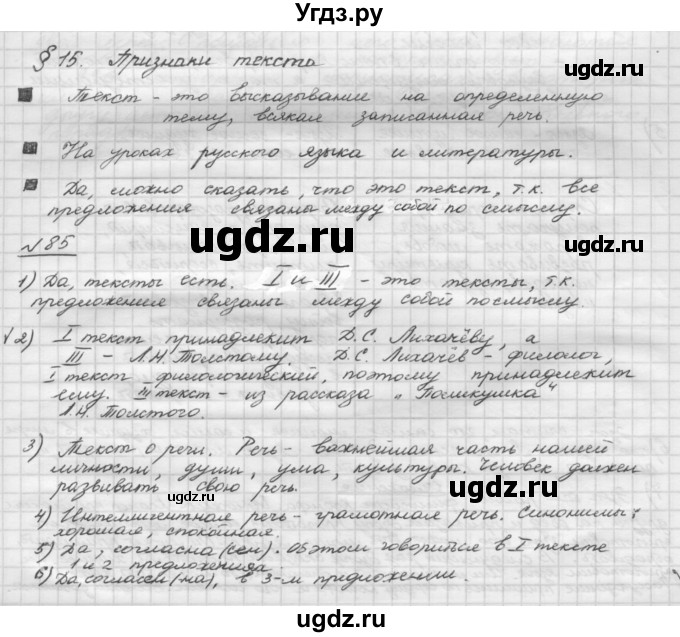 Угдз.ру
§ 15. Признаки текста
Текст - это высказывание на определенную
тему, всякая записанная речь.
На уроках русского языка и литературы.
Да, можно сказать, что это текст, т.к. все
предложения связаны между собой по смыслу.
№ 85
1) Да, тексты есть. I и III - это тексты, т.к.
предложения связаны между собой по смыслу.
√ 2) I текст принадлежит Д.С. Лихачёву, а
III - Л.Н. Толстому. Д.С. Лихачёв - филолог,
I текст филологический, поэтому принадлежит
ему. III текст - из рассказа „Поликушка"
Л.Н. Толстого.
3) Текст о речи. Речь - важнейшая часть нашей
личности, души, ума, культуры. Человек должен
развивать свою речь.
4) Интеллигентная речь - грамотная речь. Синонимы:
хорошая, спокойная.
5) Да, согласна (сен). Об этом говорится в I тексте
1 и 2 предложения.
6) Да, согласен (-на), в 3-м предложении.
ugdz.ru
ugdz.ru
ugdz.ru
ugdz.ru
ugdz.ru
ugdz.ru
ugdz.ru
ugdz.ru
ugdz.ru
ugdz.ru